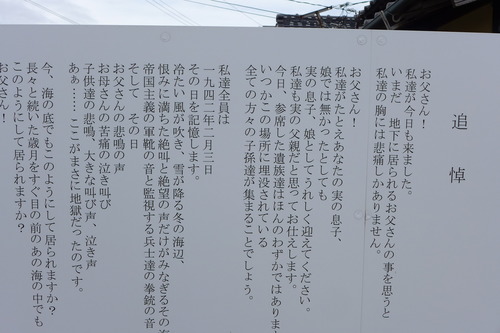 追悼
お父さん!
私達が今日も来ました。
いまだ 地下に居られるお父さんの事を思うと
私達の胸には悲痛しかありません。
お父さん!
私達がたとえあなたの実の息子、
娘では無かったとしても
実の息子、娘としてうれしく迎えてください。
私達も実の父親だと思ってお仕えします。
今日、参席した遺族達はほんのわずかではありま
いつかこの場所に埋没されている
全ての方々の子孫達が集まることでしょう。
私達全員は
一九四二年二月三日
その日を記憶します。
冷たい風が吹き、雪が降る冬の海辺、
恨みに満ちた絶叫と絶望の声だけがみなぎるその
帝国主義の軍靴の音と監視する兵士達の拳銃の音
そして その日
お父さんの悲鳴の声
お母さんの苦痛の泣き叫び
子供達の悲鳴、大きな叫び声、泣き声
あぁ……ここがまさに地獄だったのです。
今、海の底でもこのようにして居られますか?
長々と続いた歳月をすぐ目の前のあの海の中でも
このようにして居られますか?
お父さん!